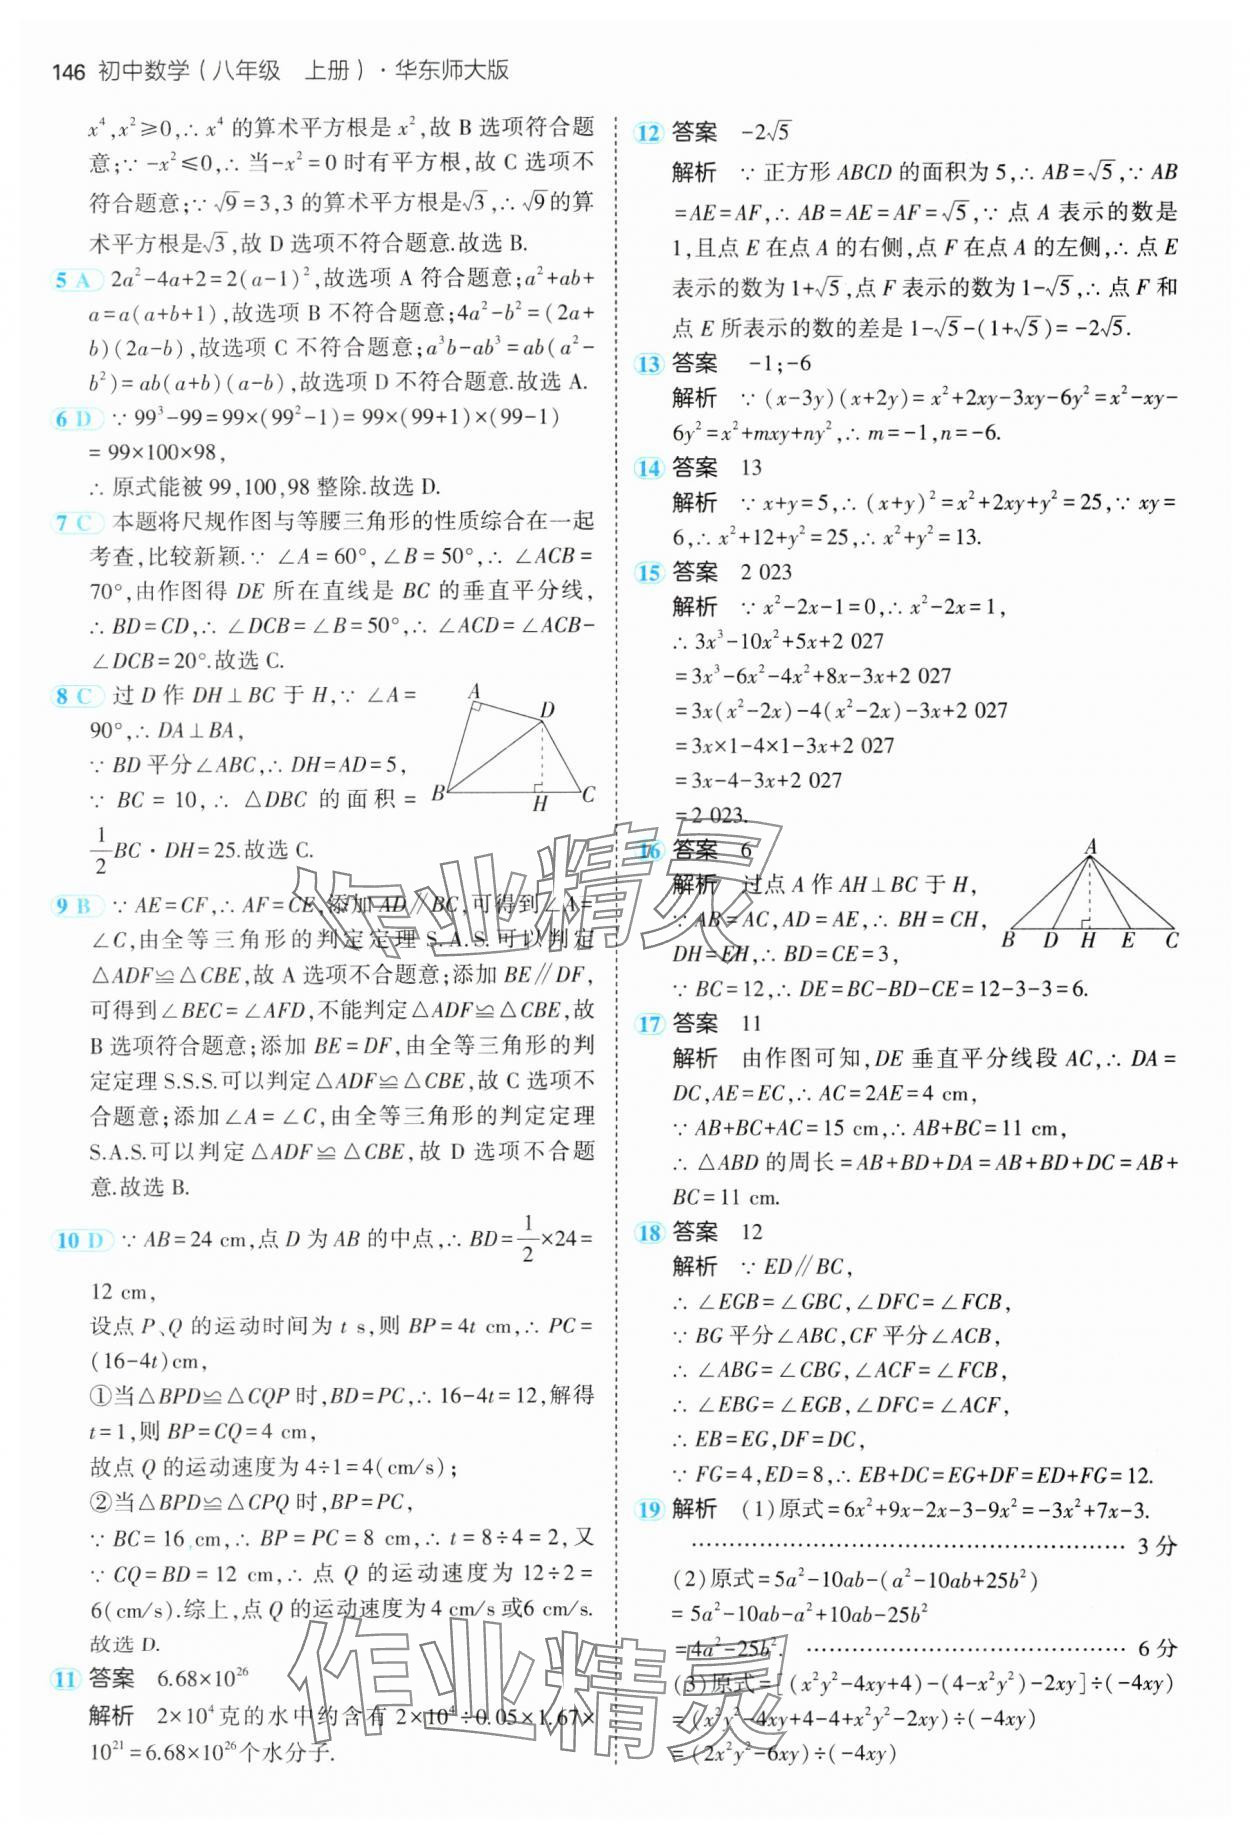 146 初中数学(八年级 上册)·华东师大版
x⁴,x²≥0,∴ x⁴ 的算术平方根是 x²,故 B 选项符合题
意;∵ -x²≤0,∴ 当-x²=0 时有平方根,故 C 选项不
符合题意;∵ √9=3,3 的算术平方根是√3,∴ √9的算
术平方根是√3,故 D 选项不符合题意.故选 B.
5 A 2a²-4a+2=2(a-1)²,故选项 A 符合题意;a²+ab+
a=a(a+b+1),故选项 B 不符合题意;4a²-b²=(2a+
b)(2a-b),故选项 C 不符合题意;a³b-ab³=ab(a²-
b²)=ab(a+b)(a-b),故选项 D 不符合题意.故选 A.
6 D ∵ 99³-99=99×(99²-1)=99×(99+1)×(99-1)
=99×100×98,
∴ 原式能被 99,100,98 整除.故选 D.
7 C 本题将尺规作图与等腰三角形的性质综合在一起
考查,比较新颖.∵ ∠A=60°,∠B=50°,∴ ∠ACB=
70°,由作图得 DE 所在直线是 BC 的垂直平分线,
∴ BD=CD,∴ ∠DCB=∠B=50°,∴ ∠ACD=∠ACB-
∠DCB=20°.故选 C.
8 C 过 D 作 DH⊥BC 于 H,∵ ∠A=
90°,∴ DA⊥BA,
∵ BD 平分∠ABC,∴ DH=AD=5,
∵ BC=10,∴ △DBC 的面积=
1/2 BC·DH=25.故选 C.
A
D
B
H
C
9 B ∵ AE=CF,∴ AF=CE,添加 AD∥BC,可得到∠A=
∠C,由全等三角形的判定定理 S.A.S.可以判定
△ADF≌△CBE,故 A 选项不合题意;添加 BE∥DF,
可得到∠BEC=∠AFD,不能判定△ADF≌△CBE,故
B 选项符合题意;添加 BE=DF,由全等三角形的判
定定理 S.S.S.可以判定△ADF≌△CBE,故 C 选项不
合题意;添加∠A=∠C,由全等三角形的判定定理
S.A.S.可以判定△ADF≌△CBE,故 D 选项不合题
意.故选 B.
10 D ∵ AB=24 cm,点 D 为 AB 的中点,∴ BD=1/2×24=
12 cm,
设点 P、Q 的运动时间为 t s,则 BP=4t cm,∴ PC=
(16-4t)cm,
①当△BPD≌△CQP 时,BD=PC,∴ 16-4t=12,解得
t=1,则 BP=CQ=4 cm,
故点 Q 的运动速度为 4÷1=4(cm/s);
②当△BPD≌△CPQ 时,BP=PC,
∵ BC=16 cm,∴ BP=PC=8 cm,∴ t=8÷4=2,又
∵ CQ=BD=12 cm,∴ 点 Q 的运动速度为 12÷2=
6(cm/s).综上,点 Q 的运动速度为 4 cm/s 或6 cm/s.
故选 D.
11 答案 6.68×10²⁶
解析 2×10⁴ 克的水中约含有 2×10⁴÷0.05×1.67×
10²¹=6.68×10²⁶个水分子.
12 答案 -2√5
解析 ∵ 正方形 ABCD 的面积为 5,∴ AB=√5,∵ AB
=AE=AF,∴ AB=AE=AF=√5,∵ 点 A 表示的数是
1,且点 E 在点 A 的右侧,点 F 在点 A 的左侧,∴ 点 E
表示的数为 1+√5,点 F 表示的数为 1-√5,∴ 点 F 和
点 E 所表示的数的差是 1-√5-(1+√5)=-2√5.
13 答案 -1;-6
解析 ∵ (x-3y)(x+2y)=x²+2xy-3xy-6y²=x²-xy-
6y²=x²+mxy+ny²,∴ m=-1,n=-6.
14 答案 13
解析 ∵ x+y=5,∴ (x+y)²=x²+2xy+y²=25,∵ xy=
6,∴ x²+12+y²=25,∴ x²+y²=13.
15 答案 2 023
解析 ∵ x²-2x-1=0,∴ x²-2x=1,
∴ 3x³-10x²+5x+2 027
=3x³-6x²-4x²+8x-3x+2 027
=3x(x²-2x)-4(x²-2x)-3x+2 027
=3x×1-4×1-3x+2 027
=3x-4-3x+2 027
=2 023.
16 答案 6
解析 过点 A 作 AH⊥BC 于 H,
∵ AB=AC,AD=AE,∴ BH=CH,
DH=EH,∴ BD=CE=3,
∵ BC=12,∴ DE=BC-BD-CE=12-3-3=6.
A
B D H E C
17 答案 11
解析 由作图可知,DE 垂直平分线段 AC,∴ DA=
DC,AE=EC,∴ AC=2AE=4 cm,
∵ AB+BC+AC=15 cm,∴ AB+BC=11 cm,
∴ △ABD 的周长=AB+BD+DA=AB+BD+DC=AB+
BC=11 cm.
18 答案 12
解析 ∵ ED∥BC,
∴ ∠EGB=∠GBC,∠DFC=∠FCB,
∵ BG 平分∠ABC,CF 平分∠ACB,
∴ ∠ABG=∠CBG,∠ACF=∠FCB,
∴ ∠EBG=∠EGB,∠DFC=∠ACF,
∴ EB=EG,DF=DC,
∵ FG=4,ED=8,∴ EB+DC=EG+DF=ED+FG=12.
19 解析 (1)原式=6x²+9x-2x-3-9x²=-3x²+7x-3.
…………………………………………………… 3 分
(2)原式=5a²-10ab-(a²-10ab+25b²)
=5a²-10ab-a²+10ab-25b²
=4a²-25b². …………………………………… 6 分
(3)原式=[(x²y²-4xy+4)-(4-x²y²)-2xy]÷(-4xy)
=(x²y²-4xy+4-4+x²y²-2xy)÷(-4xy)
=(2x²y²-6xy)÷(-4xy)
作业精灵
作业精灵